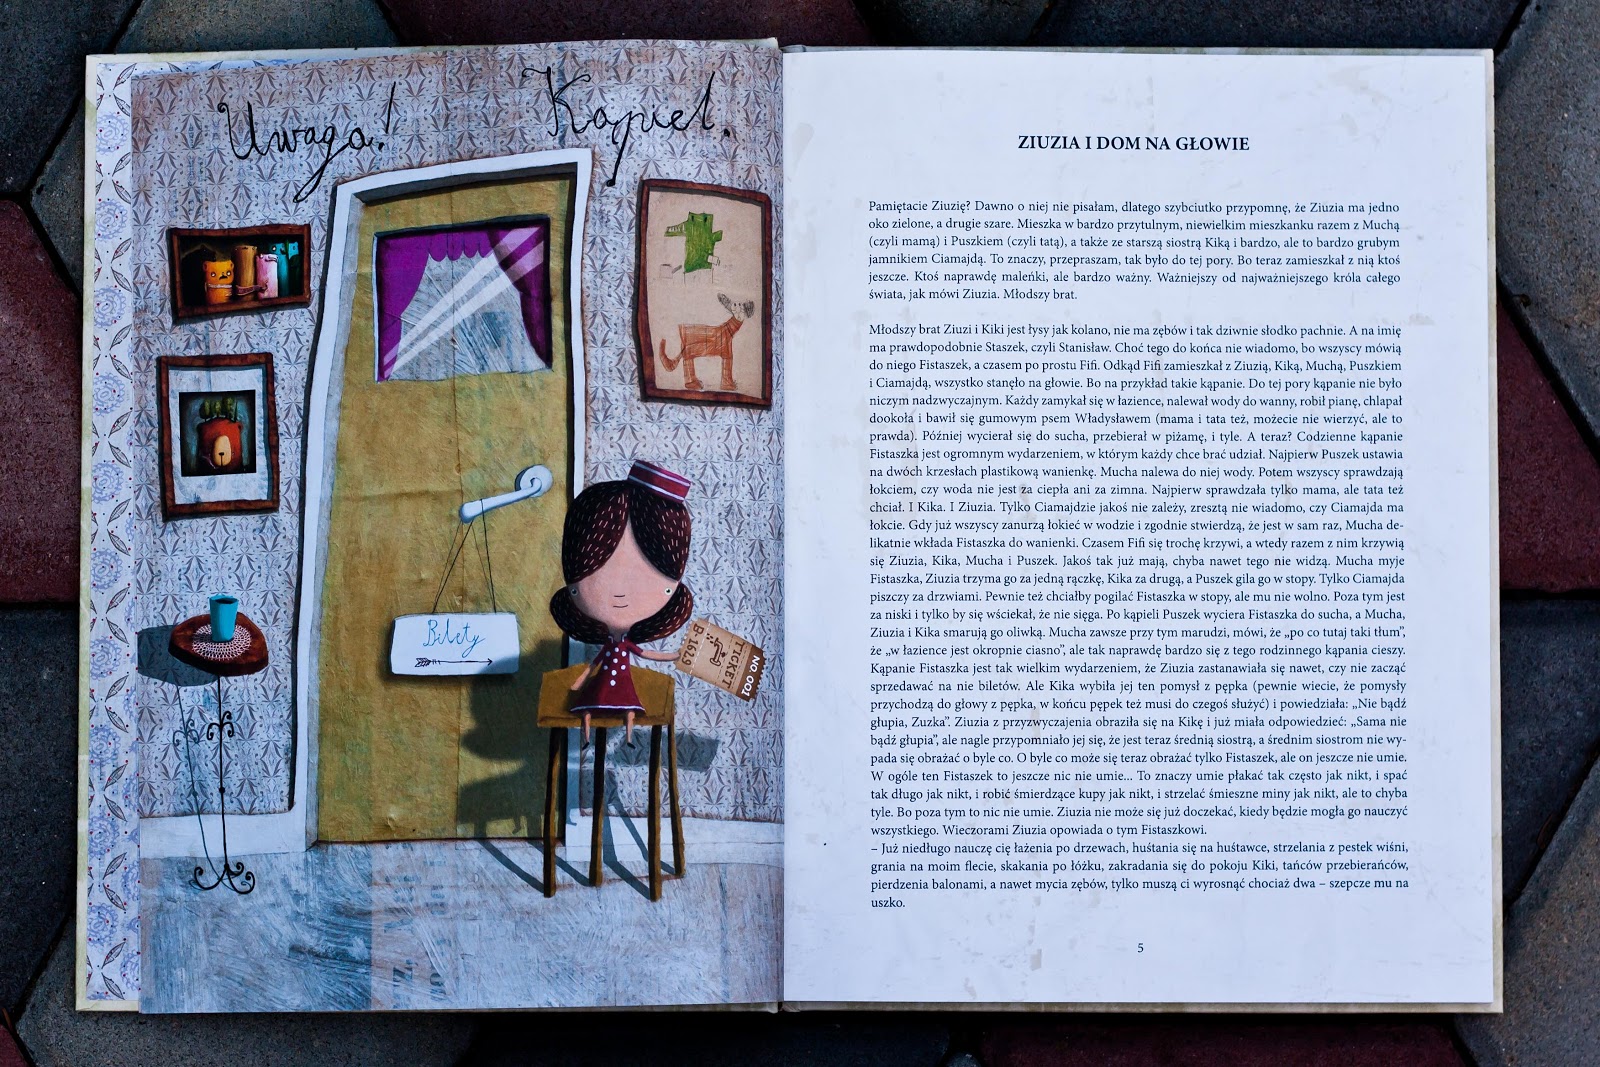 Uwaga! Kąpiel.
Bilety
TICKET
B-1629
NO 001
ZIUZIA I DOM NA GŁOWIE
Pamiętacie Ziuzię? Dawno o niej nie pisałam, dlatego szybciutko przypomnę, że Ziuzia ma jedno
oko zielone, a drugie szare. Mieszka w bardzo przytulnym, niewielkim mieszkanku razem z Muchą
(czyli mamą) i Puszkiem (czyli tatą), a także ze starszą siostrą Kiką i bardzo, ale to bardzo grubym
jamnikiem Ciamajdą. To znaczy, przepraszam, tak było do tej pory. Bo teraz zamieszkał z nią ktoś
jeszcze. Ktoś naprawdę maleńki, ale bardzo ważny. Ważniejszy od najważniejszego króla całego
świata, jak mówi Ziuzia. Młodszy brat.
Młodszy brat Ziuzi i Kiki jest łysy jak kolano, nie ma zębów i tak dziwnie słodko pachnie. A na imię
ma prawdopodobnie Staszek, czyli Stanisław. Choć tego do końca nie wiadomo, bo wszyscy mówią
do niego Fistaszek, a czasem po prostu Fifi. Odkąd Fifi zamieszkał z Ziuzią, Kiką, Muchą, Puszkiem
i Ciamajdą, wszystko stanęło na głowie. Bo na przykład takie kąpanie. Do tej pory kąpanie nie było
niczym nadzwyczajnym. Każdy zamykał się w łazience, nalewał wody do wanny, robił pianę, chlapał
dookoła i bawił się gumowym psem Władysławem (mama i tata też, możecie nie wierzyć, ale to
prawda). Później wycierał się do sucha, przebierał w piżamę, i tyle. A teraz? Codzienne kąpanie
Fistaszka jest ogromnym wydarzeniem, w którym każdy chce brać udział. Najpierw Puszek ustawia
na dwóch krzesłach plastikową wanienkę. Mucha nalewa do niej wody. Potem wszyscy sprawdzają
łokciem, czy woda nie jest za ciepła ani za zimna. Najpierw sprawdzała tylko mama, ale tata też
chciał. I Kika. I Ziuzia. Tylko Ciamajdzie jakoś nie zależy, zresztą nie wiadomo, czy Ciamajda ma
łokcie. Gdy już wszyscy zanurzą łokieć w wodzie i zgodnie stwierdzą, że jest w sam raz, Mucha de-
likatnie wkłada Fistaszka do wanienki. Czasem Fifi się trochę krzywi, a wtedy razem z nim krzywią
się Ziuzia, Kika, Mucha i Puszek. Jakoś tak już mają, chyba nawet tego nie widzą. Mucha myje
Fistaszka, Ziuzia trzyma go za jedną rączkę, Kika za drugą, a Puszek gila go w stopy. Tylko Ciamajda
piszczy za drzwiami. Pewnie też chciałby pogilać Fistaszka w stopy, ale mu nie wolno. Poza tym jest
za niski i tylko by się wściekał, że nie sięga. Po kąpieli Puszek wyciera Fistaszka do sucha, a Mucha,
Ziuzia i Kika smarują go oliwką. Mucha zawsze przy tym marudzi, mówi, że „po co tutaj taki tłum”,
że „w łazience jest okropnie ciasno”, ale tak naprawdę bardzo się z tego rodzinnego kąpania cieszy.
Kąpanie Fistaszka jest tak wielkim wydarzeniem, że Ziuzia zastanawiała się nawet, czy nie zacząć
sprzedawać na nie biletów. Ale Kika wybiła jej ten pomysł z pępka (pewnie wiecie, że pomysły
przychodzą do głowy z pępka, w końcu pępek też musi do czegoś służyć) i powiedziała: „Nie bądź
głupia, Zuzka”. Ziuzia z przyzwyczajenia obraziła się na Kikę i już miała odpowiedzieć: „Sama nie
bądź głupia”, ale nagle przypomniało jej się, że jest teraz średnią siostrą, a średnim siostrom nie wy-
pada się obrażać o byle co. O byle co może się teraz obrażać tylko Fistaszek, ale on jeszcze nie umie.
W ogóle ten Fistaszek to jeszcze nic nie umie... To znaczy umie płakać tak często jak nikt, i spać
tak długo jak nikt, i robić śmierdzące kupy jak nikt, i strzelać śmieszne miny jak nikt, ale to chyba
tyle. Bo poza tym to nic nie umie. Ziuzia nie może się już doczekać, kiedy będzie mogła go nauczyć
wszystkiego. Wieczorami Ziuzia opowiada o tym Fistaszkowi.
– Już niedługo nauczę cię łażenia po drzewach, huśtania się na huśtawce, strzelania z pestek wiśni,
grania na moim flecie, skakania po łóżku, zakradania się do pokoju Kiki, tańców przebierańców,
pierdzenia balonami, a nawet mycia zębów, tylko muszą ci wyrosnąć chociaż dwa – szepcze mu na
uszko.
5